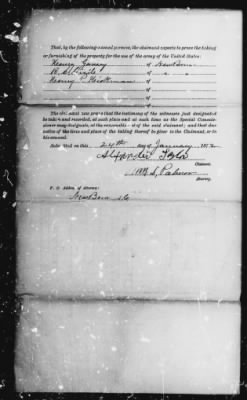 That, by the following-named persons, the claimant expects to prove the taking
or furnishing of the property for the use of the army of the United States:
Henry of New Bern
of " "
Henry of
of
of
of
The claimant now prays that the testimony of the witnesses just designated
be taken and recorded, at such place and at such time as the Special Commis-
sioner may designate, at the convenience of the said claimant; and that due
notice of the time and place of the taking thereof be given to the Claimant, or to
his counsel.
Dated this 24th day of January, 187
Alexander
Claimant.
Wm S. Palmer
Attorney.
P. O. Address of Attorney:
New Bern N C